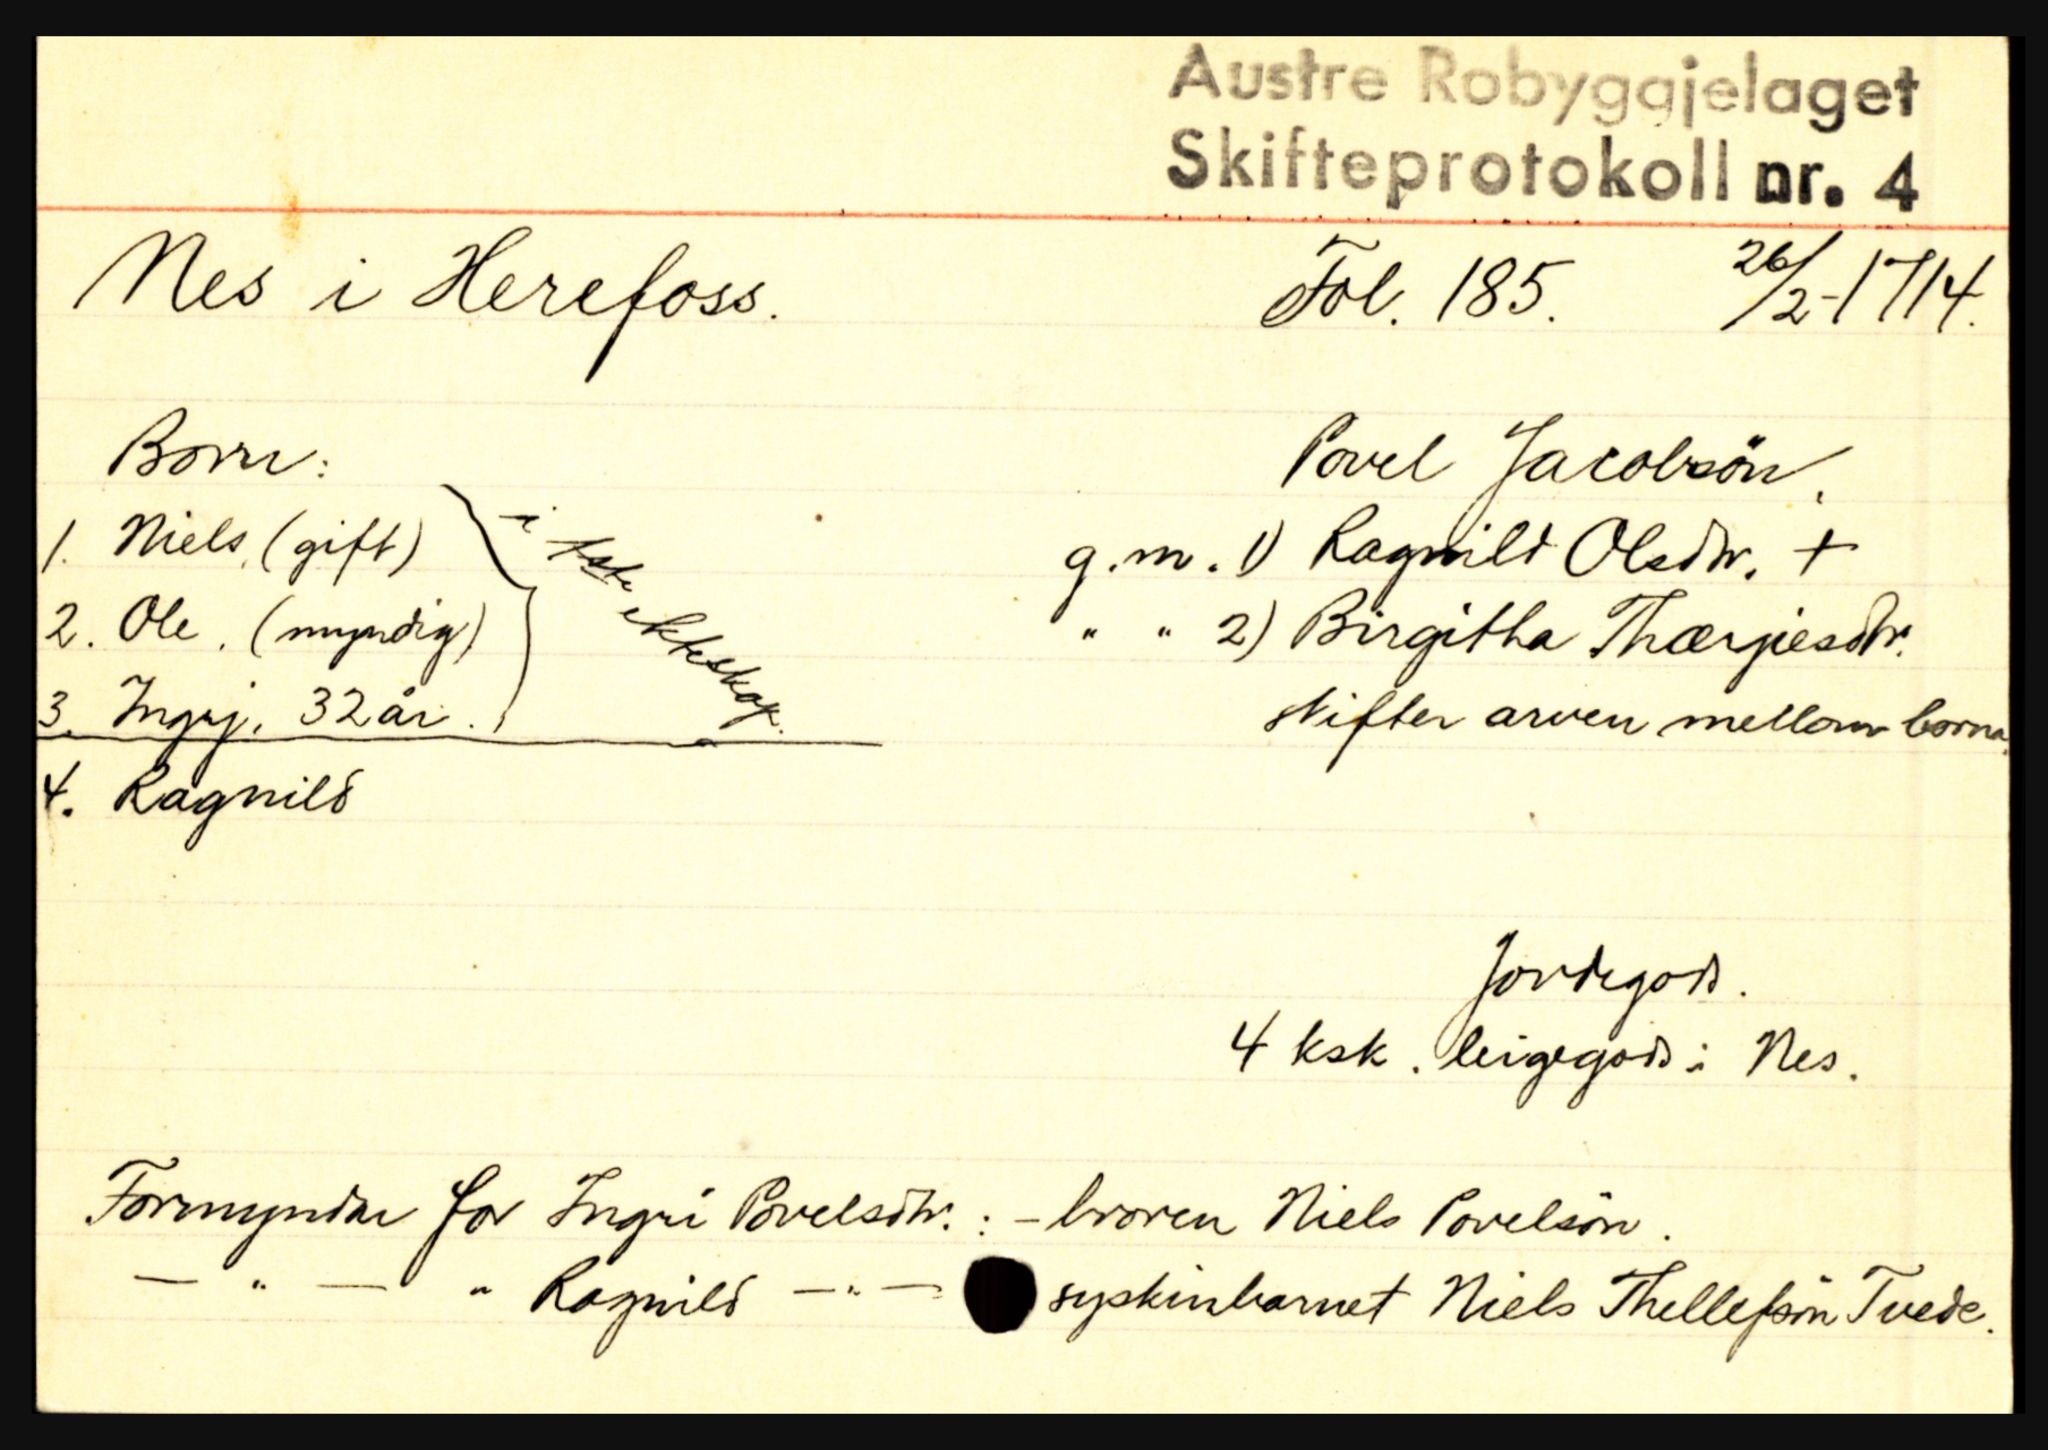 Austre Robyggjelaget
Skifteprotokoll nr. 4
Nes i Herefoss. Fol. 185. 26/2-1714.
Born:
1. Niels, (gift)
2. Ole. (myndig)
3. Ingrj. 32 år.
i 1ste ekteskap.
4. Ragnild
Povel Jacobsön,
g.m. 1) Ragnild Olsdtr. +
" " 2) Birgitha Thærjiesdtr.
skifter arven mellom borna.
Jordegods.
4 ksk. leigegods i Nes.
Formyndar for Ingri Povelsdtr. : - broren Niels Povelsön.
— " — " Ragnild — " — syskinbarnet Niels Thellefsön Tvede.